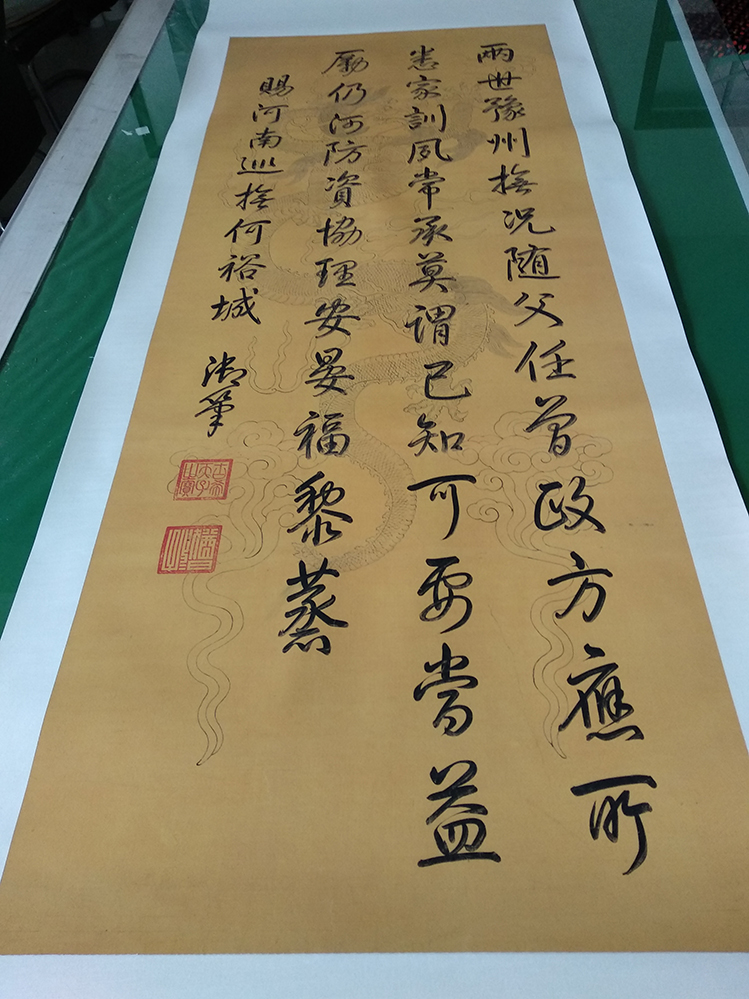 兩世豫州撫况随父任曽政方應所
悉家訓夙常承莫謂已知可要當益
勵仍河防資協理安晏福黎蒸
賜河南巡撫何裕城
御筆
古希天子之寶